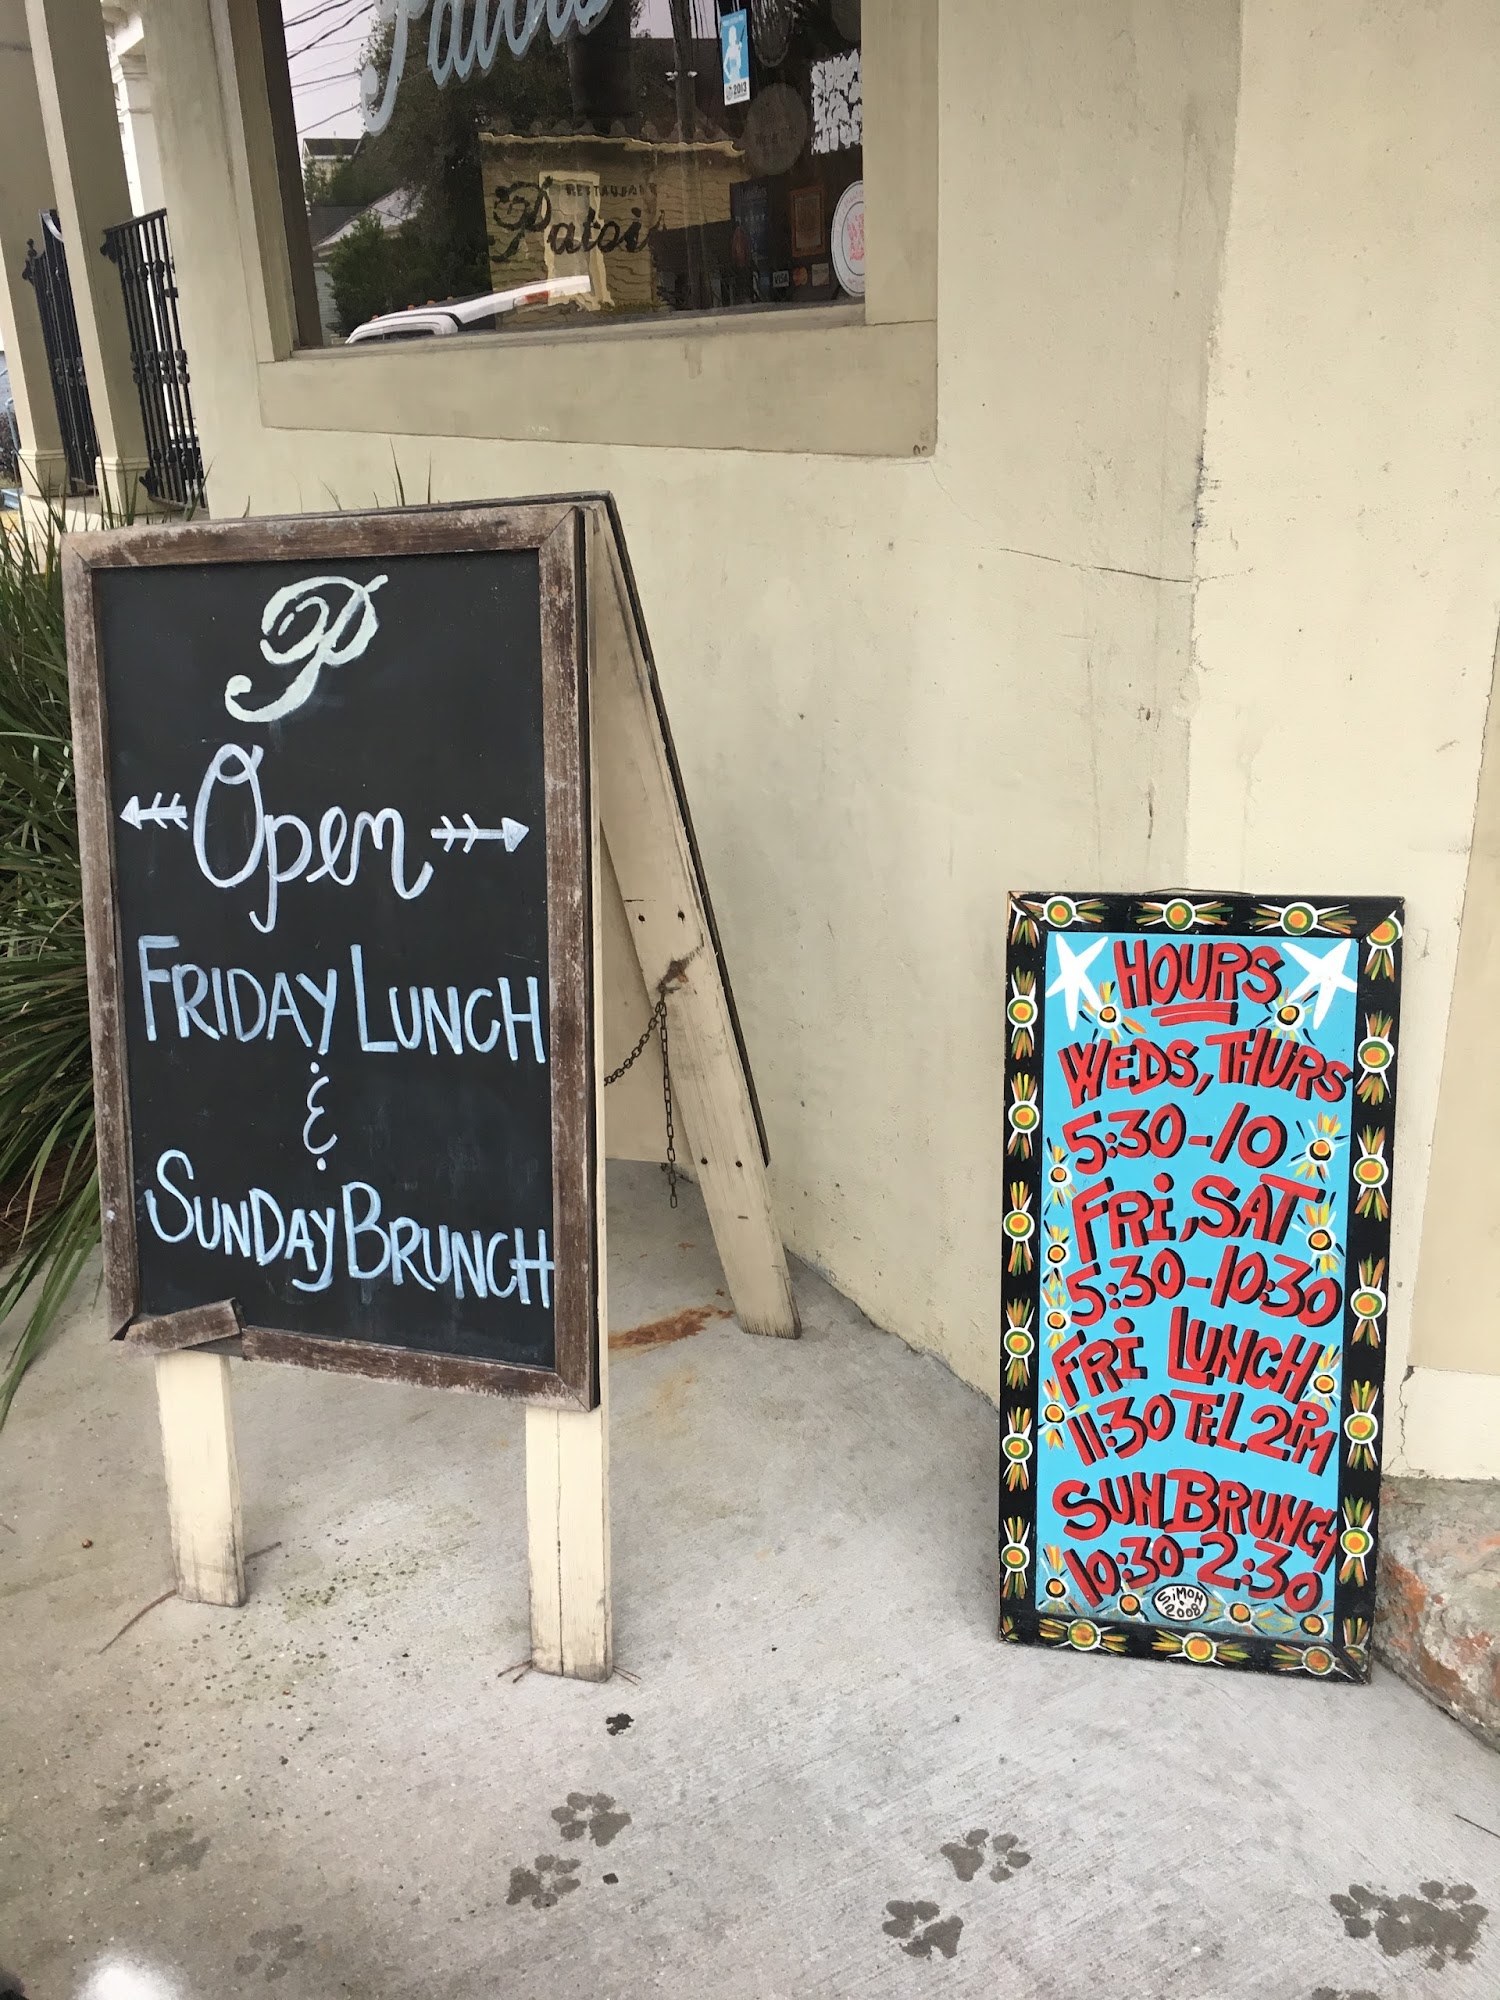 Patois
2013
RESTAURANT
Patois
VISA
P
Open
FRIDAY LUNCH
&
SUNDAY BRUNCH
HOURS
WEDS, THURS
5:30-10
FRi, SAT
5:30-10:30
FRi LUNCH
11:30 TiL 2PM
SUN BRUNCH
10:30-2:30
SiMON
2008